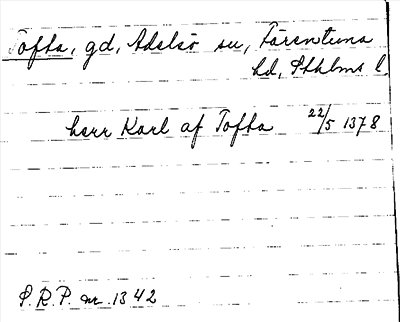 Tofta, gd, Adelsö sn, Färentuna
hd, Sthlms l.
herr Karl af Tofta 22/5 1378
P.R.P. nr. 1342